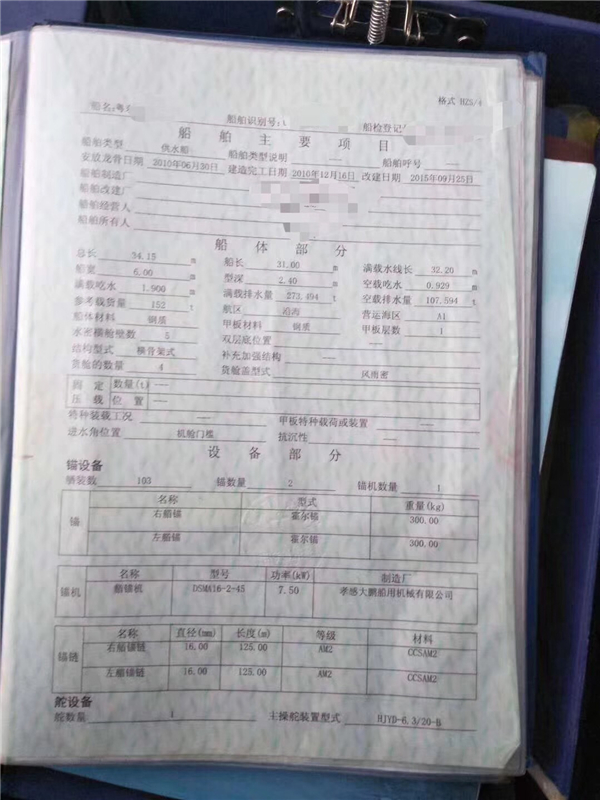 格式 HZS/4
船名:粤
船舶识别号: 船检登记
船 舶 主 要 项 目
船舶类型 供水船 船舶类型说明 —— 船舶呼号 ——
安放龙骨日期 2010年06月30日 建造完工日期 2010年12月16日 改建日期 2015年09月25日
船舶制造厂
船舶改建厂
船舶经营人
船舶所有人
船 体 部 分
总长 34.15 m 船长 31.00 m 满载水线长 32.20 m
船宽 6.00 m 型深 2.40 m 空载吃水 0.929 m
满载吃水 1.900 m 满载排水量 273.494 t 空载排水量 107.594 t
参考载货量 152 t 航区 沿海 营运海区 A1
船体材料 钢质 甲板材料 钢质 甲板层数 1
水密横舱壁数 5 双层底位置 ——
结构型式 横骨架式 补充加强结构 ——
货舱的数量 4 货舱盖型式 风雨密
固定压载 数量(t) ——
位置 ——
特种装载工况 —— 甲板特种载荷或装置 ——
进水角位置 机舱门槛 抗沉性 ——
设 备 部 分
锚设备
舾装数 103 锚数量 2 锚机数量 1
锚 名称 型式 重量(kg)
右艏锚 霍尔锚 300.00
左艏锚 霍尔锚 300.00
锚机 名称 型号 功率(kW) 制造厂
艏锚机 DSMA16-2-45 7.50 孝感大鹏船用机械有限公司
锚链 名称 直径(mm) 长度(m) 等级 材料
右艏锚链 16.00 125.00 AM2 CCSAM2
左艏锚链 16.00 125.00 AM2 CCSAM2
舵设备
舵数量 1 主操舵装置型式 HJYD-6.3/20-B